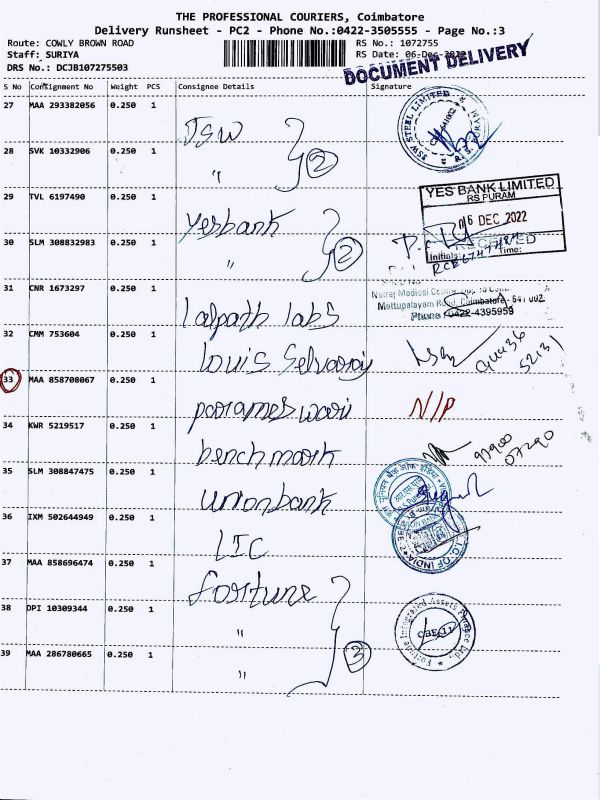 THE PROFESSIONAL COURIERS, Coimbatore
Delivery Runsheet - PC2 - Phone No.:0422-3505555 - Page No.:3
Route: COWLY BROWN ROAD
RS No.: 1072755
Staff: SURIYA
RS Date: 06-Dec-2022
DRS No.: DCJB107275503
DOCUMENT DELIVERY
S No Consignment No Weight PCS Consignee Details Signature
27 MAA 293382056 0.250 1 JSW
JSW STEEL LIMITED
28 SVK 10332906 0.250 1 " 2
29 TVL 6197490 0.250 1 Yesbank
YES BANK LIMITED
RS PURAM
06 DEC 2022
RECEIVED
Initial: Time:
30 SLM 308832983 0.250 1 " 2
31 CNR 1673297 0.250 1 Lalpath labs
Mettupalayam Road, Coimbatore - 641 002
Phone : 0422-4395959
32 CMM 753604 0.250 1 Louis Selvaraj
33 MAA 858708067 0.250 1 parameswari N/P
34 KWR 5219517 0.250 1 benchmark
35 SLM 308847475 0.250 1 Unionbank
36 IXM 502644949 0.250 1 LIC
L.I.C. OF INDIA
37 MAA 858696474 0.250 1 fortune
38 DPI 10309344 0.250 1 "
Fortune Integrated Assets Finance Ltd.
39 MAA 286780665 0.250 1 " 3